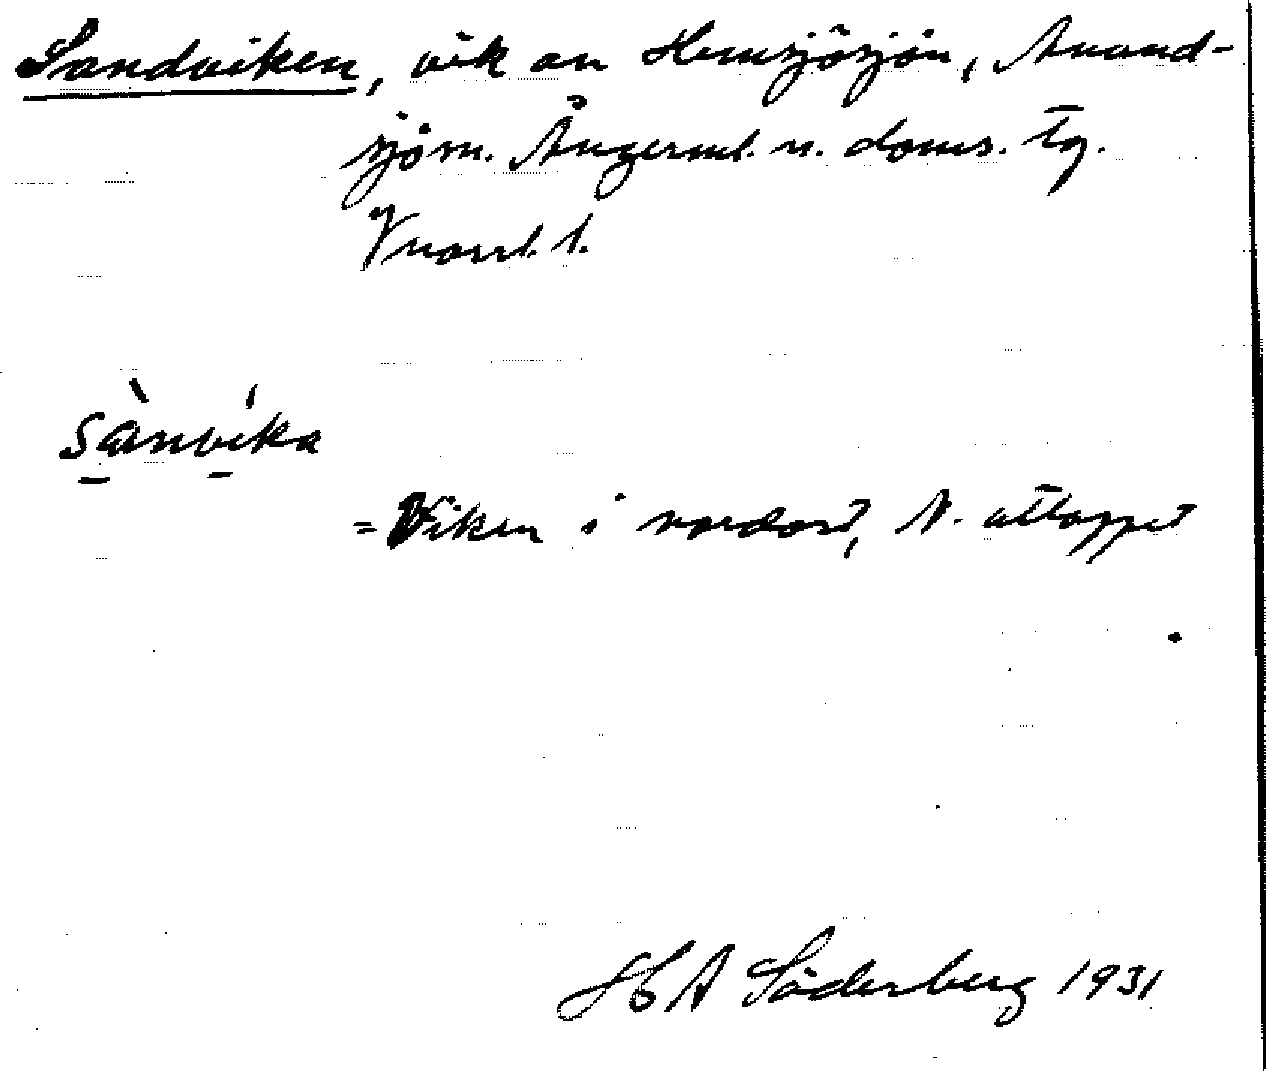 Sandviken, vik av Hemsjösjön, Anund-
sjö sn. Ångerml. n. doms. tg.
Vnorrl. l.
sànvíka
= Viken i nordost, N. utloppet
H A Söderberg 1931